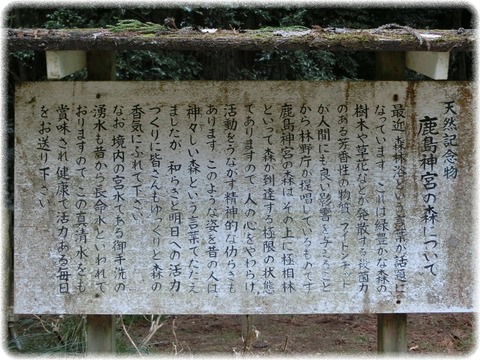 天然記念物
鹿島神宮の森について
最近、森林浴という言葉が話題に
なっています。これは緑豊かな森の
樹木や草花などが発散する殺菌力
のある芳香性の物質、フィトンチッド
が人間にも良い影響を与えること
から林野庁が提唱しているものです
鹿島神宮の森は、その上に極相林
といって森が到達する極限の状態
でありますので、人の心をやわらげ、
活動をうながす精神的な仂らきも
あります。このような姿を昔の人は
神々しい森という言葉でたたえ
ましたが、和らぎと明日への活力
づくりに皆さんもゆっくりと森の
香気にふれて下さい。
なお、境内の宮水である御手洗の
湧水も昔から長命水といわれて
おりますので、この真清水をも
賞味され、健康で活力ある毎日
をお送り下さい